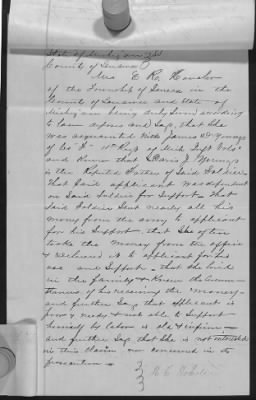 State of Michigan } SS
County of Lenawee }
Mrs E. R.
of the Township of Seneca in the
County of Lenawee and State of
Michigan being duly Sworn according
to Law deposes and Says, that She
was acquainted with James D Youngs
of Co F 11th Regt of Mich Inft Vols
and knew that Davis J Youngs
is the Reputed Father of Said Soldier
that Said applicant was dependent
on Said Soldier for Support. that
Said Soldier Sent nearly all his
money from the army to applicant
for his Support, that She often
took the money from the office
& delivered it to applicant for his
use and Support. that She lived
in the family & knew the circum-
stances of his receiving the money
and further Say that applicant is
poor & needy & not able to Support
himself by labor is old & infirm
and further Say that She is not interested
in this Claim nor concerned in its
prosecution